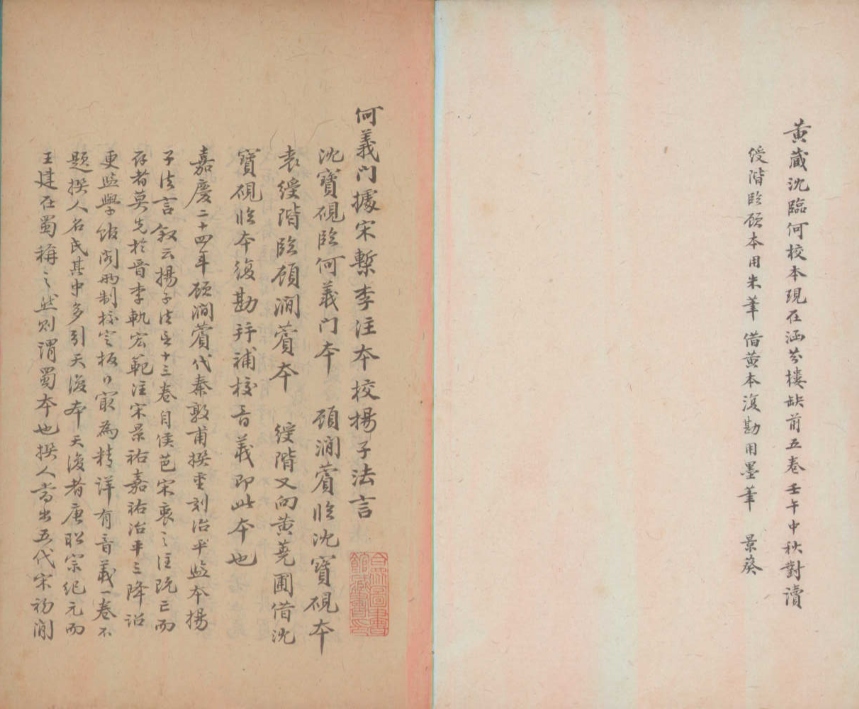 黃蔵沈臨何校本現在涵芬樓缺前五卷壬午中秋對讀
綬階臨顧本用朱筆 借黃本復勘用墨筆 景葵
何義門據宋槧李注本校揚子法言
沈寶硯臨何義門本 顧澗薲臨沈寶硯本
袁綬階臨顧澗薲本 綬階又向黃蕘圃借沈
寶硯臨本復勘并補校音義即此本也
嘉慶二十四年顧澗薲代秦敦甫撰重刻治平監本揚
子法言叙云揚子法言十三卷自侯芭宋衷之注既亡而
存者莫先於晋李軌宏範注宋景祐嘉祐治平三降詔
更監學館閣兩制校定板行最為精詳有音義一卷不
題撰人名氏其中多引天復本天復者唐昭宗紀元而
王建在蜀稱之然則謂蜀本也撰人當出五代宋初間